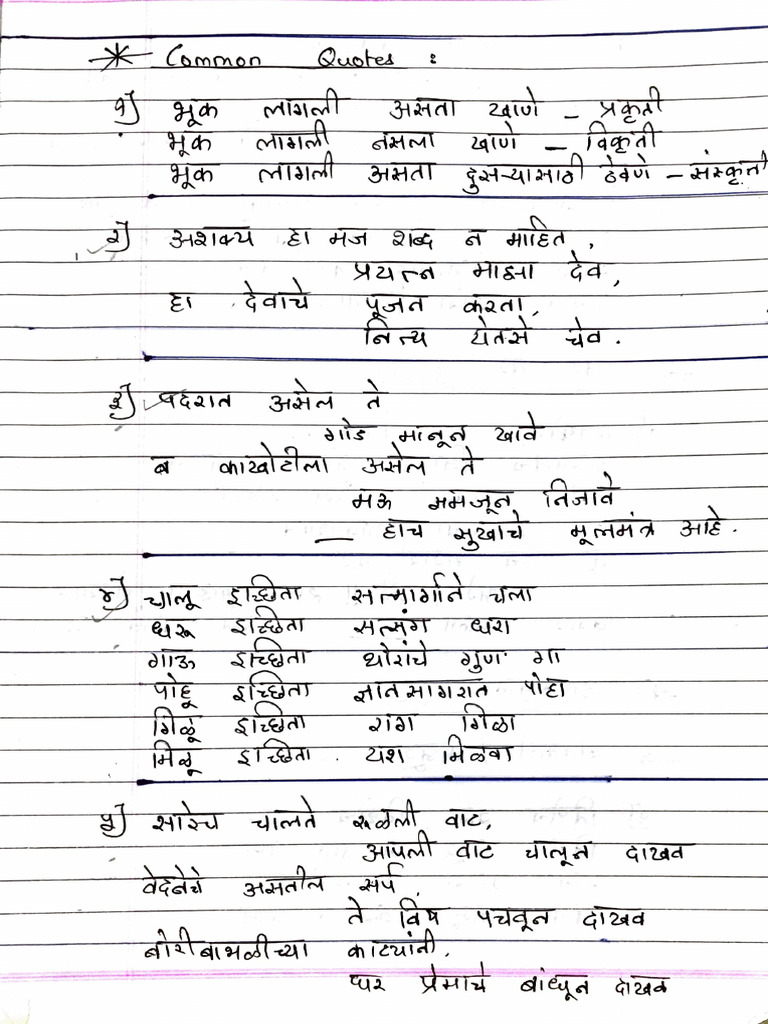 * Common Quotes :
१] भूक लागली असता खाणे – प्रकृती
भूक लागली नसला खाणे – विकृती
भूक लागली असता दुसऱ्यासाठी ठेवणे – संस्कृती
२] अशक्य हा मज शब्द न माहित,
प्रयत्न माझा देव,
हा देवाचे पूजन करता,
नित्य येतसे चेव.
३] पदरात असेल ते
गोड मानून खावे
व काखोटीला असेल ते
मऊ समजून निजावे
— हाच सुखाचे मूलमंत्र आहे.
४] चालू इच्छिता सत्मार्गाने चला
धरू इच्छिता सत्संग धरा
गाऊ इच्छिता थोरांचे गुण गा
पोहू इच्छिता ज्ञातसागरात पोहा
गिळू इच्छिता राग गिळा
मिळू इच्छिता यश मिळवा
५] सारेच चालते रूळली वाट,
आपली वाट चालून दाखव
वेदनेचे असतील सर्प
ते विष पचवून दाखव
बोरीबाभळीच्या काट्यांनी,
घर प्रेमाचे बांधून दाखव